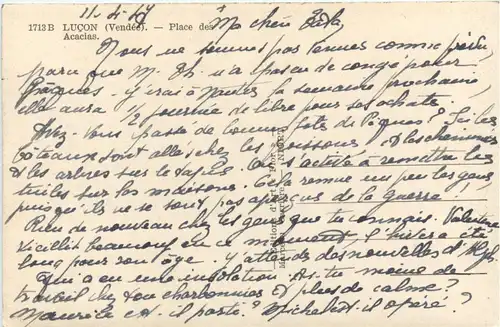 1713 B LUÇON (Vendée). — Place des
Acacias.
11-4-47
Ma chère
Nous ne sommes pas venus comme prévu,
parce que M. Th. n'a pas eu de congé pour
Pâques. J'irai à la semaine prochaine,
elle aura 1/2 journée de libre pour ses achats.
Avez-vous passé de bonnes fêtes de Pâques? Ici les
bateaux sont allés chez les poissons, les cheminées
et les arbres sur le tapis. On s'active à remettre les
tuiles sur les maisons. Cela remue un peu les gens,
puisqu'ils ne se sont pas aperçus de la guerre!
Rien de nouveau chez les gens que tu connais. Valentine
vieillit beaucoup en ce moment, l'hiver a été
long pour son âge. J'attends des nouvelles d'
qui a eu une insolation. As-tu moins de
travail chez ton charbonnier et plus de calme?
Maurice est-il parti? Michel est-il opéré?